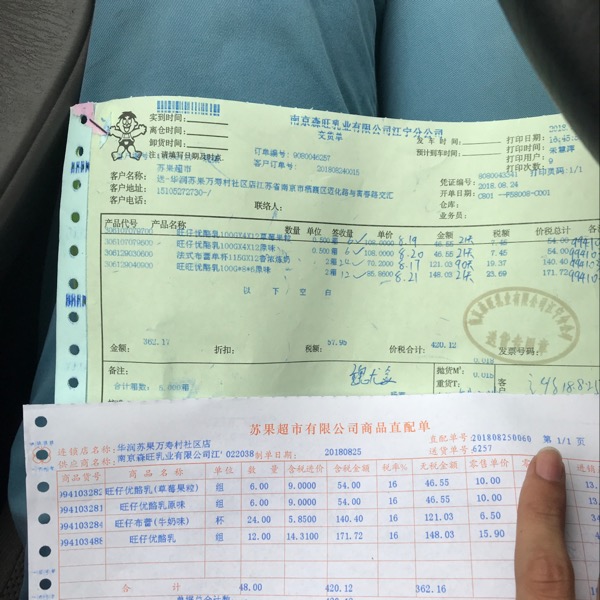 实到时间:
离仓时间:
卸货时间:
注:请填写日期及时点
南京森旺乳业有限公司江宁分公司
交货单
发车时间:
预计到车时间:
打印日期:
打印时间: 16:45:
打印用户:
打印次数: 9
打印页码:1/1
订单编号:9080046257
客户订单号: 20180824001S
苏果超市
客户名称: 送一华润苏果万寿村社区店江苏省南京市栖霞区迈化路与寅春路交汇
客户地址: 15105272730-/
客户电话:
联络人:
凭证编号: 9080043341
出库日期: 2018.08.24
仓库: CB01 --F58008-CD01
业务员:
产品代号 产品名称 数量 单位 签收量 单价 金额 税额 价税总计
旺仔优酪乳100GX4X12草莓果粒 0.500箱 6 108.0000 8.19 46.55 21天 7.45 54.00
306107079600 旺仔优酪乳100GX4X12原味 0.500箱 6 108.0000 8.20 46.55 21天 7.45 54.00
306129030600 法式布蕾单杯115GX12香浓炼奶 2箱 24 70.2000 8.17 121.03 90天 19.37 140.40
306129040000 旺旺优酪乳100G*8*6原味 2箱 12 85.8600 8.21 148.03 21天 23.69 171.72
以下空白
金额: 362.17 折扣: 税额: 57.95 价税合计: 420.12 发票号码:
备注:
合计箱数: 5.000箱
抛货M³: 0.018
重货T: 0.015
苏果超市有限公司商品直配单
连锁店名称: 华润苏果万寿村社区店
直配单号: 201808250060 第 1/1 页
供应商名称: 南京森旺乳业有限公司江' 022038 制单日期: 20180825 送货单号: 6257
商品货号 商品名称 单位 数量 含税进价 含税金额 税率% 无税金额 零售单价
994103282 旺仔优酪乳(草莓果粒) 组 6.00 9.0000 54.00 16 46.55 10.00
994103281 旺仔优酪乳原味 组 6.00 9.0000 54.00 16 46.55 10.00
994103284 旺仔布蕾(牛奶味) 杯 24.00 5.8500 140.40 16 121.03 6.50
994103488 旺仔优酪乳 组 12.00 14.3100 171.72 16 148.03 15.90
合计 48.00 420.12 362.16